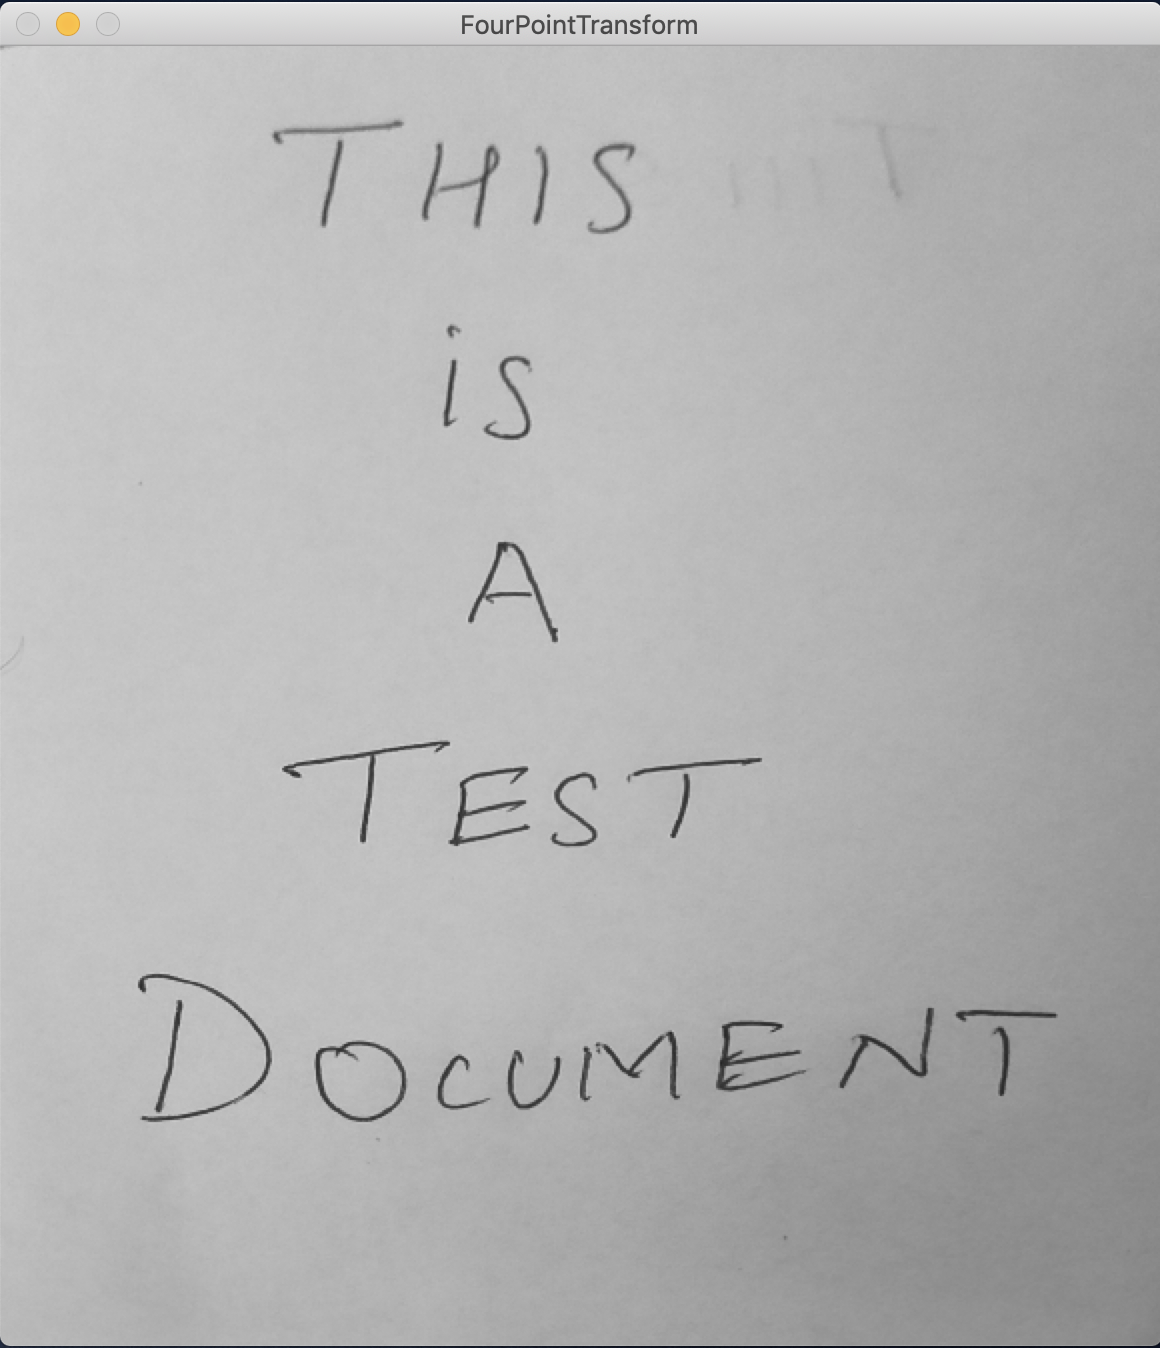 FourPointTransform
THIS
iS
A
TEST
DOCUMENT